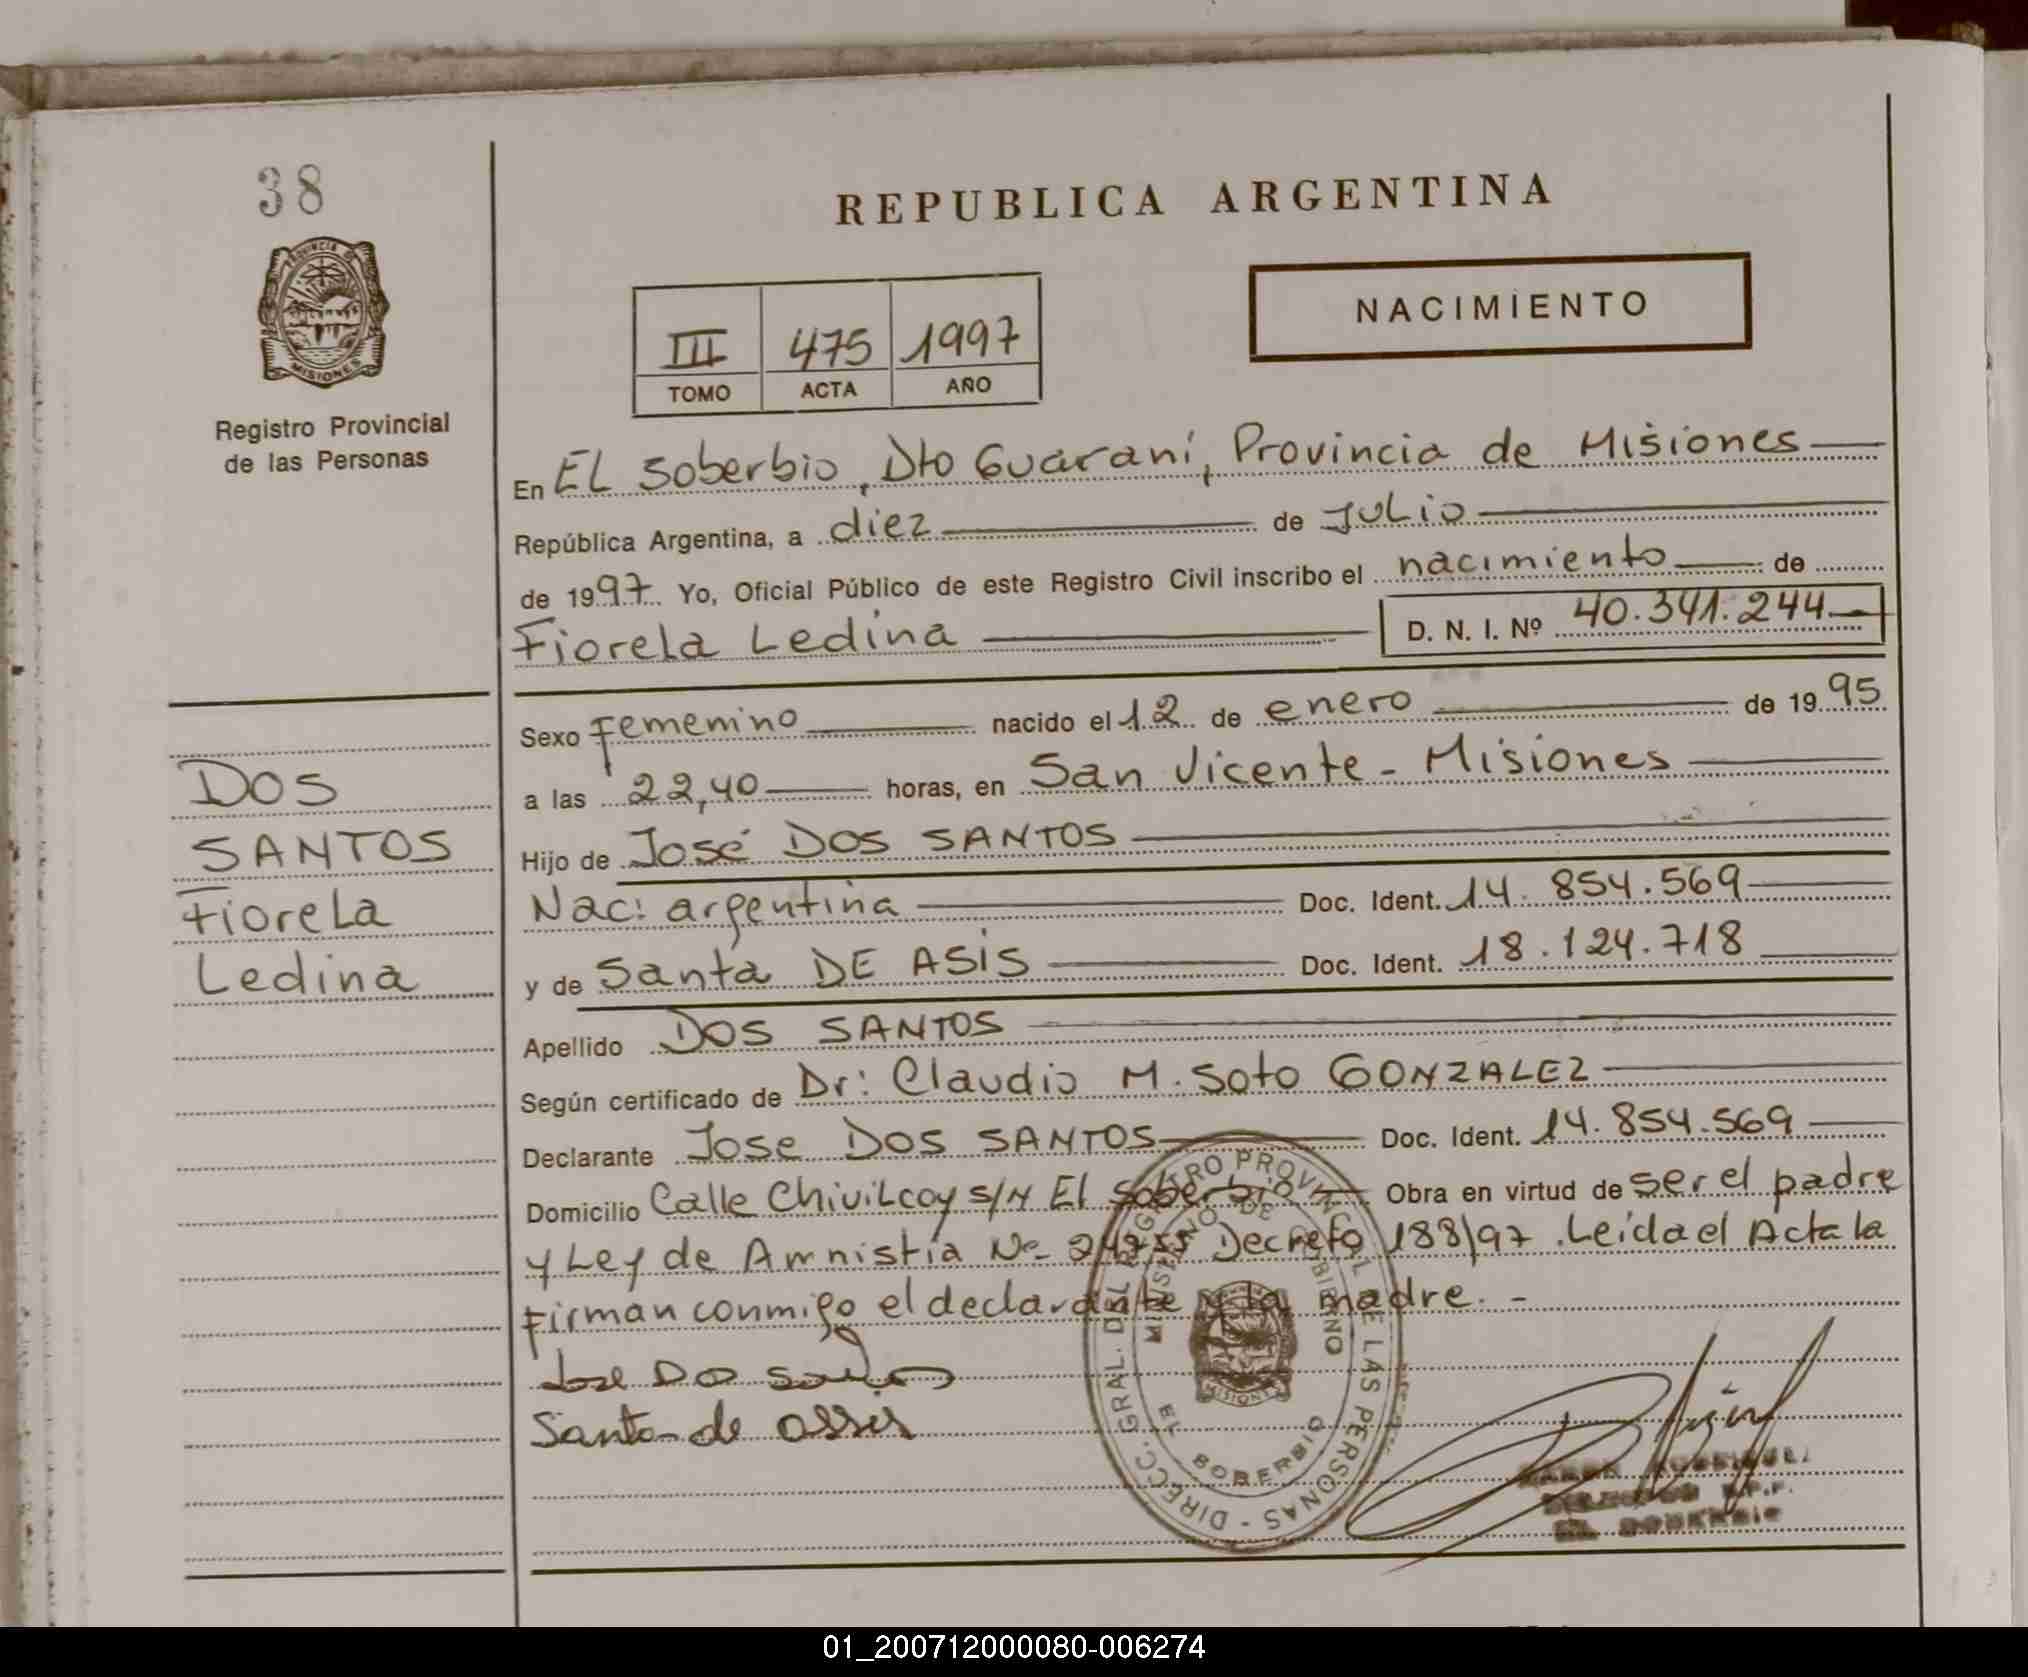 38
PROVINCIA DE
MISIONES
Registro Provincial
de las Personas
REPUBLICA ARGENTINA
NACIMIENTO
III 475 1997
TOMO ACTA AÑO
En EL Soberbio, Dto Guaraní, Provincia de Misiones
República Argentina, a diez de Julio
de 1997 Yo, Oficial Público de este Registro Civil inscribo el nacimiento de
Fiorela Ledina D. N. I. Nº 40.341.244
DOS
SANTOS
Fiorela
Ledina
Sexo Femenino nacido el 12 de enero de 1995
a las 22,40 horas, en San Vicente - Misiones
Hijo de José DOS SANTOS
Nac: argentina Doc. Ident. 14.854.569
y de Santa DE ASIS Doc. Ident. 18.124.718
Apellido DOS SANTOS
Según certificado de Dr: Claudio M. Soto GONZALEZ
Declarante Jose DOS SANTOS Doc. Ident. 14.854.569
Domicilio Calle Chivilcoy S/N El Soberbio Obra en virtud de ser el padre
y Ley de Amnistia Nº 24755 Decreto 188/97. Leida el Acta la
Firman conmigo el declarante y la madre. -
Jose Dos Santos
Santa de assis
DIRECC. GRAL. DEL REGISTRO PROVINCIAL DE LAS PERSONAS -
MINISTERIO DE GOBIERNO
MISIONES
EL SOBERBIO
EL SOBERBIO
01_200712000080-006274